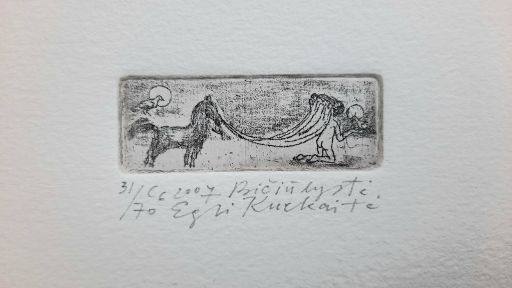 31/70 C6 2007 Bičiulystė
Eglė Kuckaitė